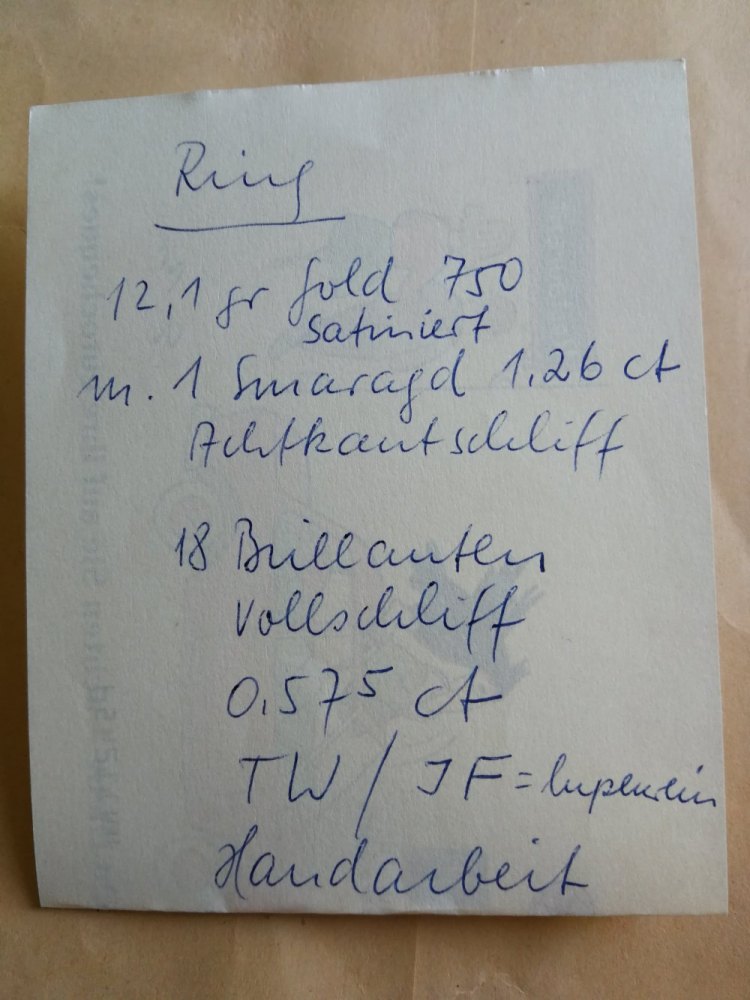 Ring
12,1 gr Gold 750
satiniert
m. 1 Smaragd 1.26 ct
Achtkantschliff
18 Brillanten
Vollschliff
0.575 ct
TW / IF = lupenrein
Handarbeit